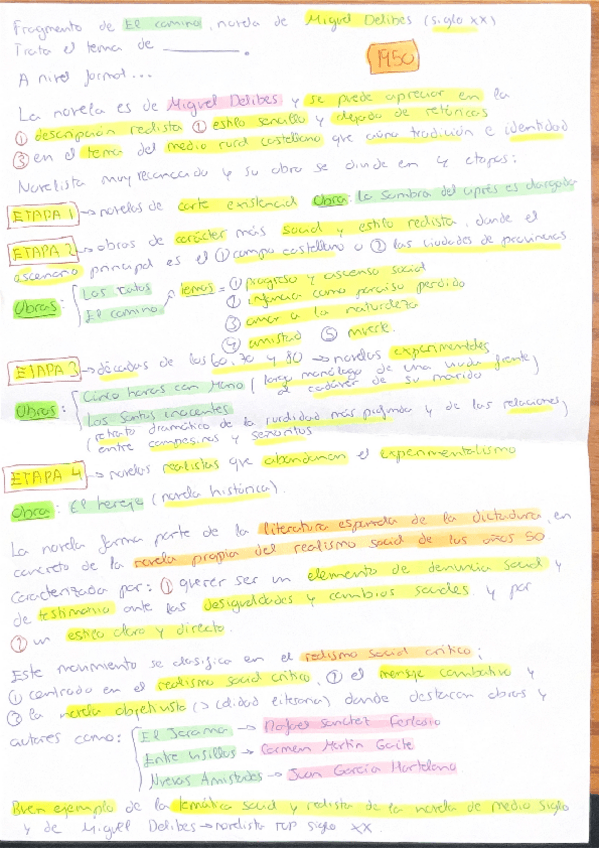 Fragmento de El camino, novela de Miguel Delibes (siglo XX)
Trata el tema de ________.
1950
A nivel formal...
La novela es de Miguel Delibes y se puede apreciar en la
① descripción realista ② estilo sencillo y alejado de retóricas
③ en el tema del medio rural castellano que aúna tradición e identidad
Novelista muy reconocido y su obra se divide en 4 etapas:
ETAPA 1 → novelas de corte existencial Obra: la sombra del ciprés es alargada
ETAPA 2 → obras de carácter más social y estilo realista, donde el
escenario principal es el ① campo castellano o ② las ciudades de provincias
Obras: Las ratas
El camino → temas = ① progreso y ascenso social
② infancia como paraíso perdido
③ amor a la naturaleza
④ amistad ⑤ muerte.
ETAPA 3 → décadas de los 60, 70 y 80 → novelas experimentales
Obras: Cinco horas con Mario (largo monólogo de una viuda frente)
al cadáver de su marido
Los Santos inocentes
(retrato dramático de la ruralidad más profunda y de las relaciones)
(entre campesinos y señoritos
ETAPA 4 → novelas realistas que abandonan el experimentalismo
Obra: El hereje (novela histórica).
La novela forma parte de la literatura española de la dictadura, en
concreto de la novela propia del realismo social de los años 50
caracterizada por: ① querer ser un elemento de denuncia social y
de testimonio ante las desigualdades y cambios sociales y por
② un estilo claro y directo.
Este movimiento se clasifica en el realismo social crítico;
① centrado en el realismo social crítico, ② el mensaje combativo y
③ la novela objetivista (> calidad literaria) donde destacan obras y
autores como: El Jarama → Rafael Sánchez Ferlosio
Entre visillos → Carmen Martín Gaite
Nuevas Amistades → Juan García Hortelano
Buen ejemplo de la temática social y realista de la novela de medio siglo
y de Miguel Delibes → novelista TOP siglo XX.